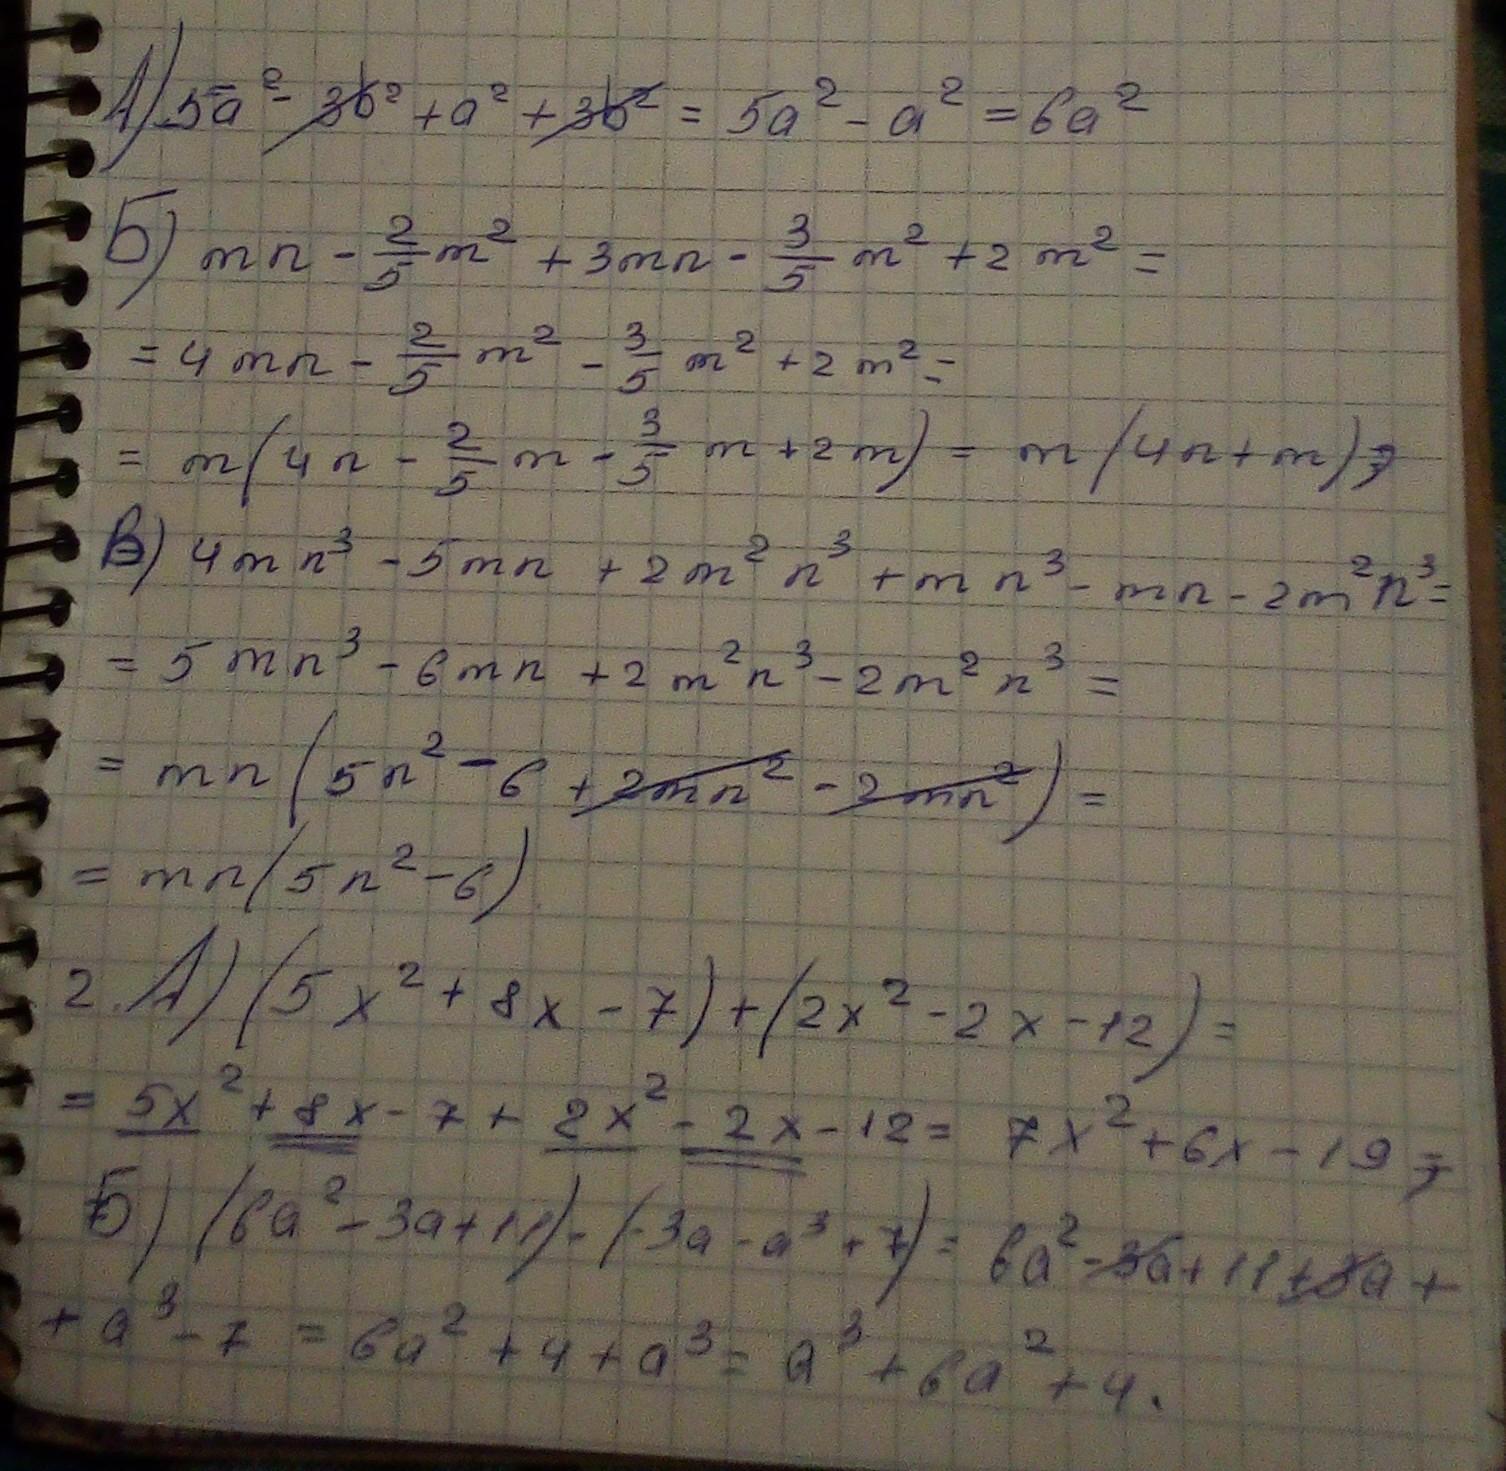 А) 5a² - 3b² + a² + 3b² = 5a² - a² = 6a²
Б) mn - 2/5 m² + 3mn - 3/5 m² + 2m² =
= 4mn - 2/5 m² - 3/5 m² + 2m² =
= m(4n - 2/5 m - 3/5 m + 2m) = m(4n + m);
В) 4mn³ - 5mn + 2m²n³ + mn³ - mn - 2m²n³ =
= 5mn³ - 6mn + 2m²n³ - 2m²n³ =
= mn(5n² - 6 + 2mn² - 2mn²) =
= mn(5n² - 6)
2. А) (5x² + 8x - 7) + (2x² - 2x - 12) =
= 5x² + 8x - 7 + 2x² - 2x - 12 = 7x² + 6x - 19;
Б) (6a² - 3a + 11) - (-3a - a³ + 7) = 6a² - 3a + 11 + 3a +
+ a³ - 7 = 6a² + 4 + a³ = a³ + 6a² + 4.